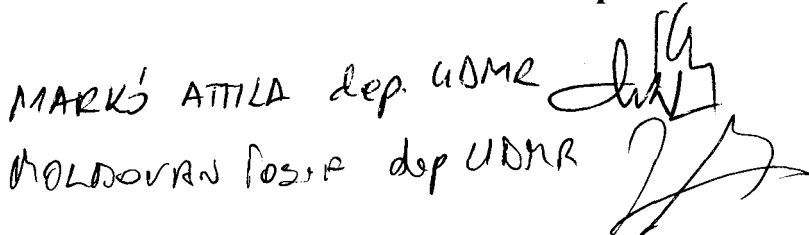 MARKÓ ATTILA dep. UDMR
MOLDOVAN Iosif dep UDMR